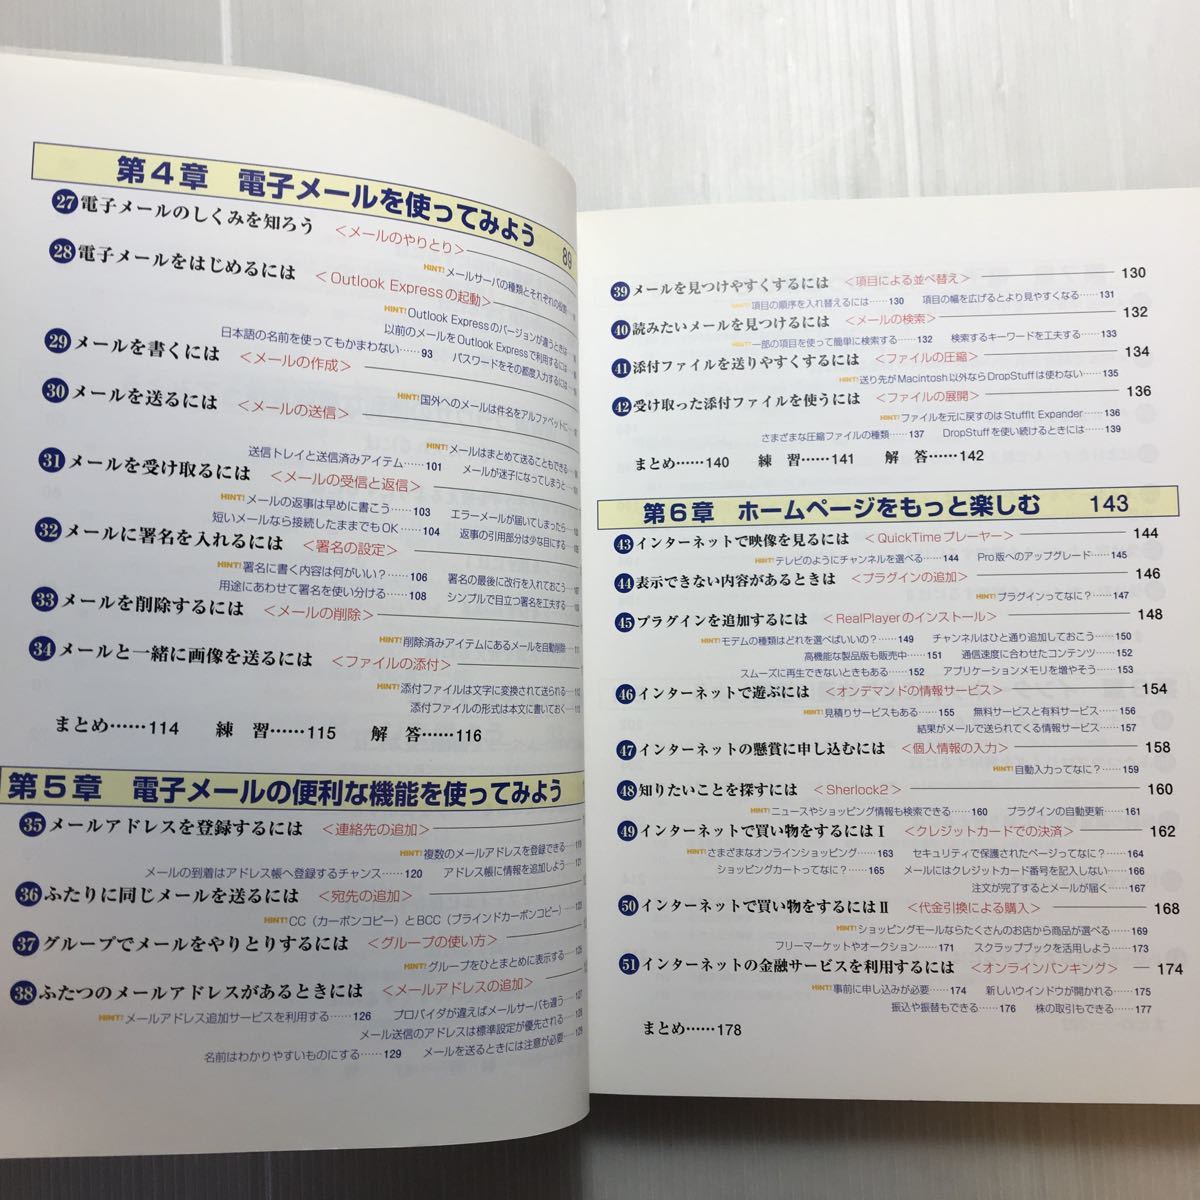 第4章 電子メールを使ってみよう 89
27 電子メールのしくみを知ろう <メールのやりとり>
HINT! メールサーバの種類とそれぞれの役割
28 電子メールをはじめるには <Outlook Expressの起動>
HINT! Outlook Expressのバージョンが違うときは
以前のメールをOutlook Expressで利用するには
日本語の名前を使ってもかまわない……93 パスワードをその都度入力するには
29 メールを書くには <メールの作成>
HINT! 国外へのメールは件名をアルファベットに
30 メールを送るには <メールの送信>
HINT! メールはまとめて送ることもできる
送信トレイと送信済みアイテム……101 メールが迷子になってしまうと
31 メールを受け取るには <メールの受信と返信>
HINT! メールの返事は早めに書こう……103 エラーメールが届いてしまったら
短いメールなら接続したままでもOK……104 返事の引用部分は少な目にする
32 メールに署名を入れるには <署名の設定>
HINT! 署名に書く内容は何がいい?……106 署名の最後に改行を入れておこう
用途にあわせて署名を使い分ける……108 シンプルで目立つ署名を工夫する
33 メールを削除するには <メールの削除>
HINT! 削除済みアイテムにあるメールを自動削除
34 メールと一緒に画像を送るには <ファイルの添付>
HINT! 添付ファイルは文字に変換されて送られる
添付ファイルの形式は本文に書いておく
まとめ……114 練 習……115 解 答……116
第5章 電子メールの便利な機能を使ってみよう
35 メールアドレスを登録するには <連絡先の追加>
HINT! 複数のメールアドレスを登録できる
メールの到着はアドレス帳へ登録するチャンス……120 アドレス帳に情報を追加しよう
36 ふたりに同じメールを送るには <宛先の追加>
HINT! CC(カーボンコピー)とBCC(ブラインドカーボンコピー)
37 グループでメールをやりとりするには <グループの使い方>
HINT! グループをひとまとめに表示する
38 ふたつのメールアドレスがあるときには <メールアドレスの追加>
HINT! メールアドレス追加サービスを利用する……126 プロバイダが違えばメールサーバも違う
メール送信のアドレスは標準設定が優先される
名前はわかりやすいものにする……129 メールを送るときには注意が必要
39 メールを見つけやすくするには <項目による並べ替え> 130
HINT! 項目の順序を入れ替えるには……130 項目の幅を広げるとより見やすくなる……131
40 読みたいメールを見つけるには <メールの検索> 132
HINT! 一部の項目を使って簡単に検索する……132 検索するキーワードを工夫する……133
41 添付ファイルを送りやすくするには <ファイルの圧縮> 134
HINT! 送り先がMacintosh以外ならDropStuffは使わない……135
42 受け取った添付ファイルを使うには <ファイルの展開> 136
HINT! ファイルを元に戻すのはStuffIt Expander……136
さまざまな圧縮ファイルの種類……137 DropStuffを使い続けるときには……139
まとめ……140 練 習……141 解 答……142
第6章 ホームページをもっと楽しむ 143
43 インターネットで映像を見るには <QuickTimeプレーヤー> 144
HINT! テレビのようにチャンネルを選べる……144 Pro版へのアップグレード……145
44 表示できない内容があるときは <プラグインの追加> 146
HINT! プラグインってなに?……147
45 プラグインを追加するには <RealPlayerのインストール> 148
HINT! モデムの種類はどれを選べばいいの?……149 チャンネルはひと通り追加しておこう……150
高機能な製品版も販売中……151 通信速度に合わせたコンテンツ……152
スムーズに再生できないときもある……152 アプリケーションメモリを増やそう……153
46 インターネットで遊ぶには <オンデマンドの情報サービス> 154
HINT! 見積りサービスもある……155 無料サービスと有料サービス……156
結果がメールで送られてくる情報サービス……157
47 インターネットの懸賞に申し込むには <個人情報の入力> 158
HINT! 自動入力ってなに?……159
48 知りたいことを探すには <Sherlock2> 160
HINT! ニュースやショッピング情報も検索できる……160 プラグインの自動更新……161
49 インターネットで買い物をするにはⅠ <クレジットカードでの決済> 162
HINT! さまざまなオンラインショッピング……163 セキュリティで保護されたページってなに?……164
ショッピングカートってなに?……165 メールにはクレジットカード番号を記入しない……166
注文が完了するとメールが届く……167
50 インターネットで買い物をするにはⅡ <代金引換による購入> 168
HINT! ショッピングモールならたくさんのお店から商品が選べる……169
フリーマーケットやオークション……171 スクラップブックを活用しよう……173
51 インターネットの金融サービスを利用するには <オンラインバンキング> 174
HINT! 事前に申し込みが必要……174 新しいウインドウが開かれる……175
振込や振替もできる……176 株の取引もできる……177
まとめ……178